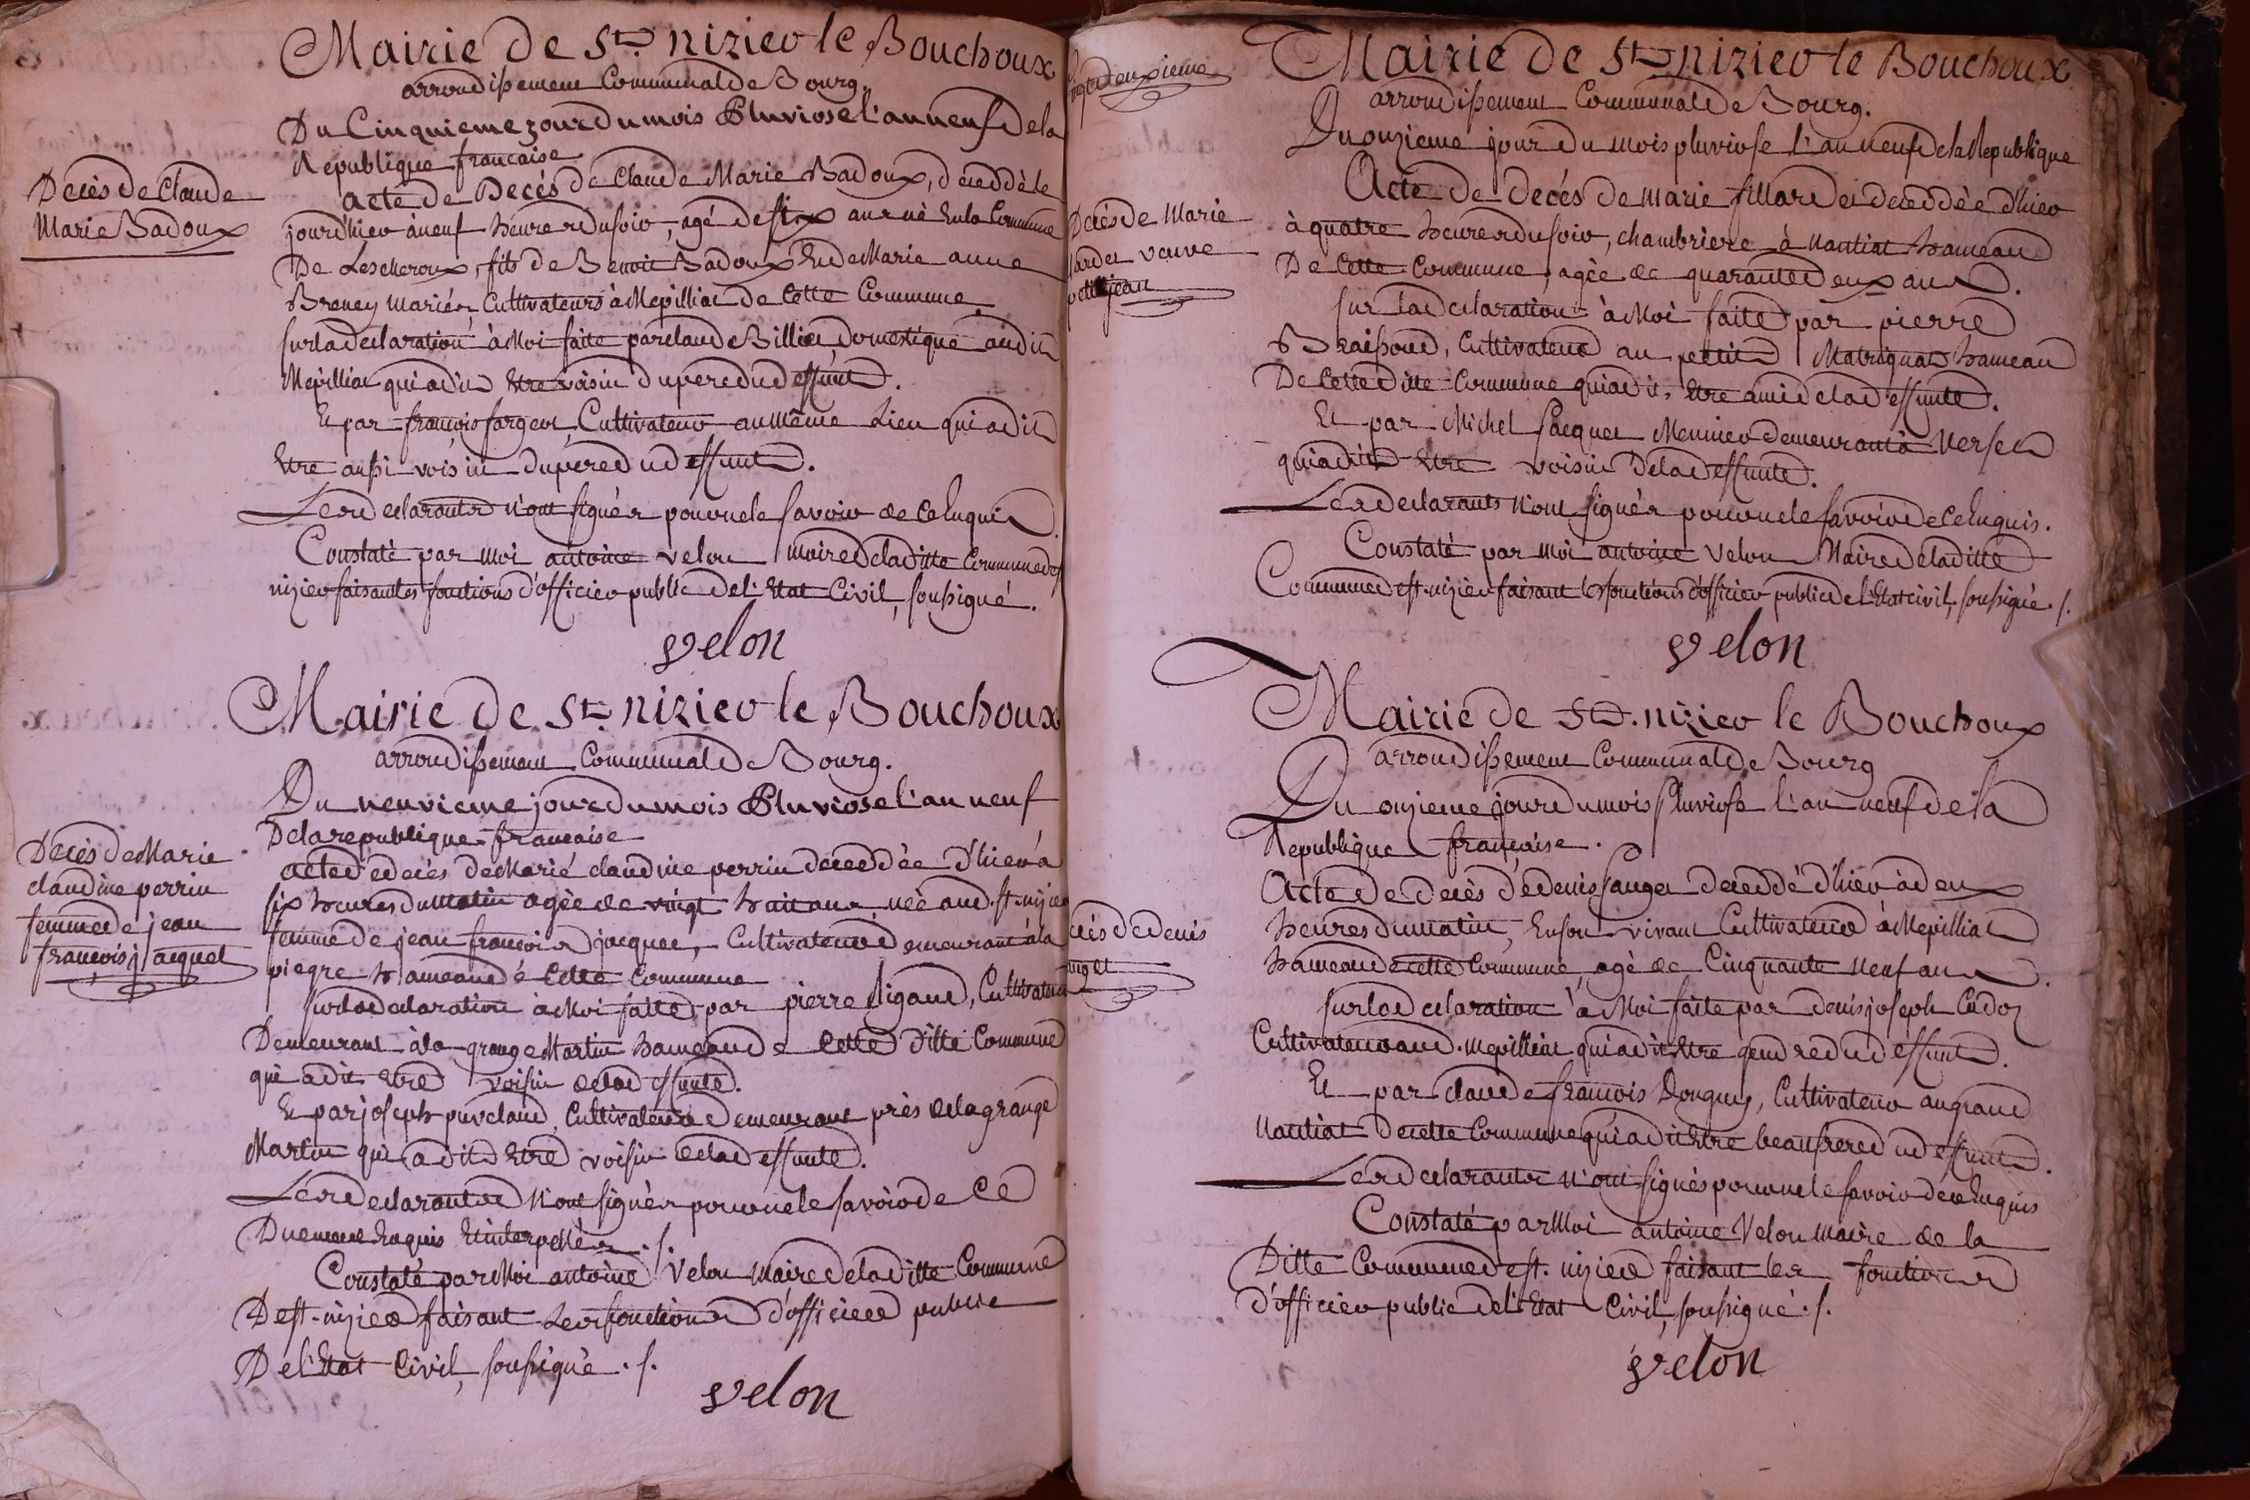 Mairie de St. nizier le Bouchoux
arrondissement Communal de Bourg.
Du Cinquieme jour du mois Pluviose l'an neuf de la
Republique francaise
Decès de Claude
Marie Badoux
Acte de Decés de Claude Marie Badoux, decedé le
jour d'hier à neuf heures du soir, agé de six ans né En la Commune
De Lescheroux, fils de Benoit Badoux Et de Marie anne
Breney mariés Cultivateurs à Mepilliat de Cette Commune
sur la declaration à Moi faite par claude Billiet domestique audit
Mepilliat qui a dit Etre voisin du pere du deffunt.
Et par françois fargeot, Cultivateur au même Lieu qui a dit
Etre aussi voisin du pere du deffunt.
Les declarants n'ont signés pour ne le savoir de ce Enquis
Constaté par moi antoine velon maire de la ditte Commune de st
nizier faisant les fonctions d'officier public de l'Etat Civil, soussigné.
velon
Mairie de St. nizier le Bouchoux
arrondissement Communal de Bourg.
Du neuvieme jour du mois Pluviose l'an neuf
De la republique francaise
Decès de Marie
claudine perrin
femme de jean
françois jacquet
acte de decés de Marie claudine perrin decedée d'hier à
six heures du matin agée de vingt huit ans, née aud. st. nizier
femme de jean francois jacquet, Cultivateur demeurant à la
piegre hameau de Cette Commune
sur la declaration à Moi faite par pierre Rigaud, Cultivateur
Demeurant à la grange Martin hameau de Cette ditte Commune
qui a dit Etre voisin de la deffunte.
Et par joseph puveland, Cultivateur demeurant près de la grange
Martin qui a dit Etre voisin de la deffunte.
Les declarants n'ont signés pour ne le savoir de Ce
Duement Enquis Et interpellés ./.
Constaté par Moi antoine Velon Maire de la ditte Commune
De st. nizier faisant Les fonctions d'officier public
De l'Etat Civil, soussigné ./.
velon
deuxieme
Mairie de St. nizier le Bouchoux
arrondissement Communal de Bourg.
Du onzieme jour du mois pluviose l'an neuf de la Republique
Decès de Marie
veuve
petitjean
Acte de Decés de Marie fillardet decedée d'hier
à quatre heures du soir, chambriere à Nantiat hameau
De Cette Commune, agée de quarante deux ans.
sur la declaration à Moi faite par pierre
Braissoud, Cultivateur au petit Matrignat hameau
De Cette ditte Commune qui a dit Etre ami de la deffunte.
Et par Michel Jacquet Meunier demeurant à Verset
qui a dit Etre voisin De la deffunte.
Les declarants n'ont signés pour ne le savoir de ce Enquis.
Constaté par moi antoine Velon Maire de la ditte
Commune de st. nizier faisant les fonctions d'officier public de l'Etat civil, soussigné ./.
velon
Mairie de St. nizier le Bouchoux
arrondissement Communal de Bourg
Du onzieme jour du mois Pluviose l'an neuf de la
Republique francaise.
Decès de denis
Acte de decès de denis Jauget decedé d'hier à deux
heures du matin, En son vivant Cultivateur à Mepilliat
hameau de cette Commune, agé de Cinquante Neuf ans.
sur la declaration à Moi faite par denis joseph Cadoz
Cultivateur aud. Mepilliat qui a dit Etre gendre du deffunt.
Et par claude francois Donguy, Cultivateur au grand
Nantiat de cette Commune qui a dit Etre beaufrere du deffunt.
Les declarants n'ont signés pour ne le savoir de ce Enquis
Constaté par Moi antoine Velon Maire de la
Ditte Commune de st. nizier faisant les fonctions
d'officier public de l'Etat Civil, soussigné ./.
velon